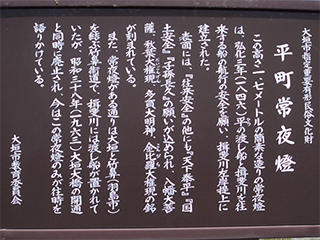 大垣市指定重要有形民俗文化財
平町常夜燈
この高さ一・七メートルの簡素な造りの常夜燈
は、弘化三年(一八四六)、平の渡し場と揖斐川を往
来する船の航行の安全を願い、揖斐川左岸堤上に
建立された。
老面には、『往来安全』の他にも『天下泰平』『国
土安全』『子孫長久』の願いが込められ、八幡大菩
薩、秋葉大権現、多賀大明神、金比羅大権現の銘
が刻まれている。
また、常夜燈がある通りは大垣と竹鼻(羽島市)
を結ぶ竹鼻街道で、揖斐川には渡し船が置かれて
いたが、昭和三十八年(一九六三)、大垣大橋の開通
と同時に廃止され、今はこの常夜燈のみが往時を
語りかけている。
大垣市教育委員会